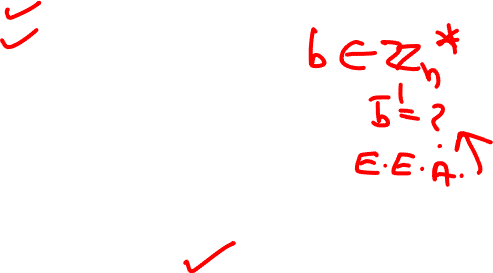 b ∈ ℤₙ*
b⁻¹ = ?
E.E.A.